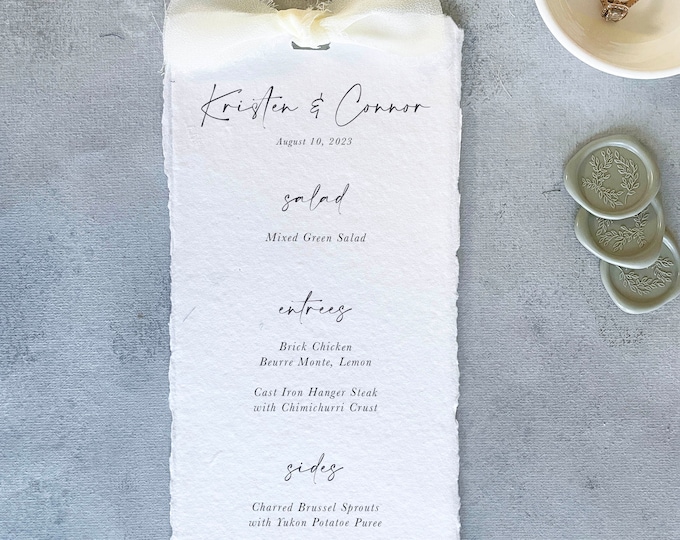 Kristen & Connor
August 10, 2023
salad
Mixed Green Salad
entrees
Brick Chicken
Beurre Monte, Lemon
Cast Iron Hanger Steak
with Chimichurri Crust
sides
Charred Brussel Sprouts
with Yukon Potatoe Puree